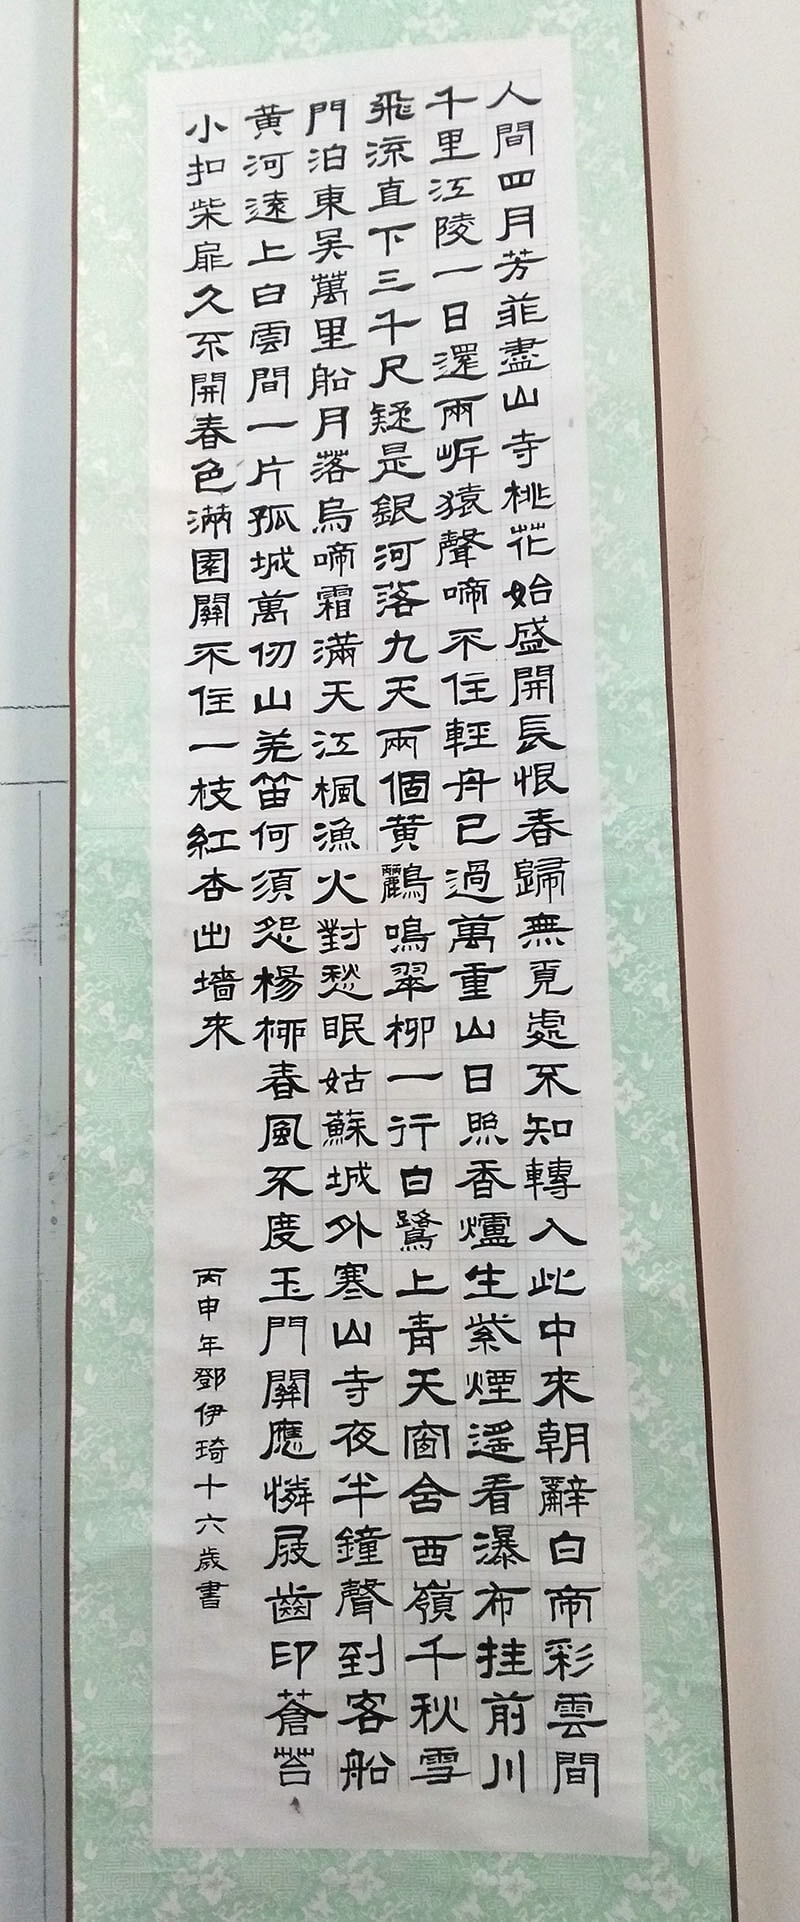 人間四月芳菲盡山寺桃花始盛開長恨春歸無覓處不知轉入此中來朝辭白帝彩雲間
千里江陵一日還兩岸猿聲啼不住輕舟已過萬重山日照香爐生紫煙遥看瀑布挂前川
飛流直下三千尺疑是銀河落九天兩個黄鸝鳴翠柳一行白鷺上青天窗含西嶺千秋雪
門泊東吴萬里船月落烏啼霜滿天江楓漁火對愁眠姑蘇城外寒山寺夜半鐘聲到客船
黄河遠上白雲間一片孤城萬仞山羌笛何須怨楊柳春風不度玉門關應憐屐齒印蒼苔
小扣柴扉久不開春色滿園關不住一枝紅杏出墻來
丙申年鄧伊琦十六歲書